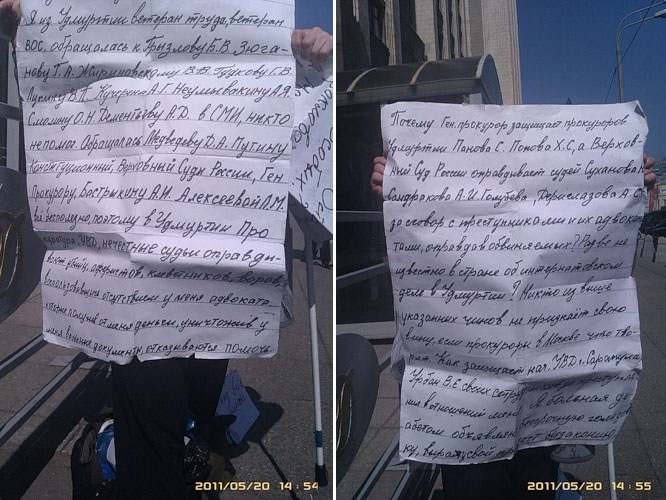 Я из Удмуртии ветеран труда, ветеран
ВОС, обращалась к Грызлову Б.В. Зюга-
нову Г.А. Жириновскому В.В. Гудкову Г.В.
Лукину В.П. Кучерена А.Г. Неумывакину А.Я.
Смолину О.Н. Дементьеву А.Д. в СМИ, никто
не помог. Обращалась Медведеву Д.А. Путину
Конституционный, Верховный Суды России, Ген
Прокурору, Бастрыкину А.И. Алексеевой Л.М.
всё бесполезно, поэтому в Удмуртии Про
куратура, УВД, нечестные судьи оправды-
вают убийц, аферистов, клеветников, воров,
воспользовавшись отсутствием у меня адвоката
которые получив от меня деньги, уничтожив у
меня важные документы, отказываются помочь
2011/05/20 14:54
Почему Ген.прокурор защищает прокуроров
Удмуртии Панова С. Попова Х.С, а Верхов-
ный Суд России оправдывает судей Суханова
Кандракова А.И. Голубева, Дерислазова А.С.
за сговор с преступниками и их адвока-
тами, оправдав обвиняемых? Разве не
известно в стране об интернатовском
деле в Удмуртии? Никто из выше
указанных чинов не признает свою
вину, если прокуроры в Москве что тво-
рят. Как защищает нач. УВД г. Сарапула
Урбан В.Е своих
ния в отношении меня. Я больная ди-
абетом объявляю бессрочную голодов
ку, выражу свой беззаконию
2011/05/20 14:55